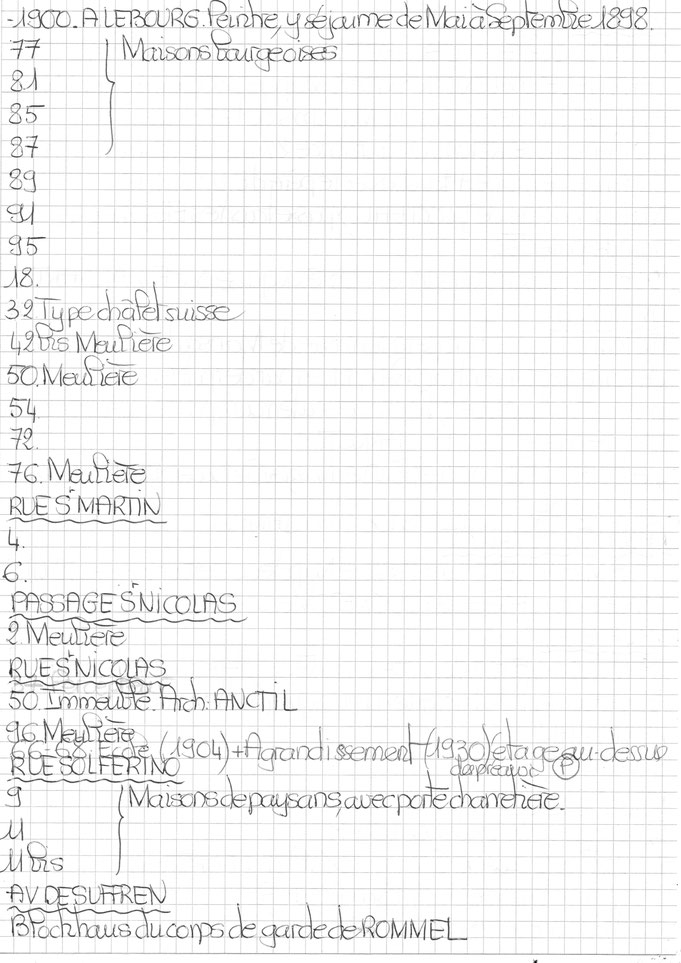 -1900. A LEBOURG. Peintre, y séjourne de Mai à Septembre 1898.
77 Maisons bourgeoises
81
85
87
89
91
95
18.
32 Type châlet suisse
42bis Meulière
50. Meulière
54
72.
76. Meulière
RUE St MARTIN
4.
6.
PASSAGE St NICOLAS
2 Meulière
RUE St NICOLAS
50 Immeuble. Arch. ANCTIL
96 Meulière
66-68 Ecole (1904) + Agrandissement (1930) étage au-dessus
du préau (P)
RUE SOLFERINO
9 Maisons de paysans, avec porte charretière.
11
11 bis
AV DE SUFFREN
Blockhaus du corps de garde de ROMMEL